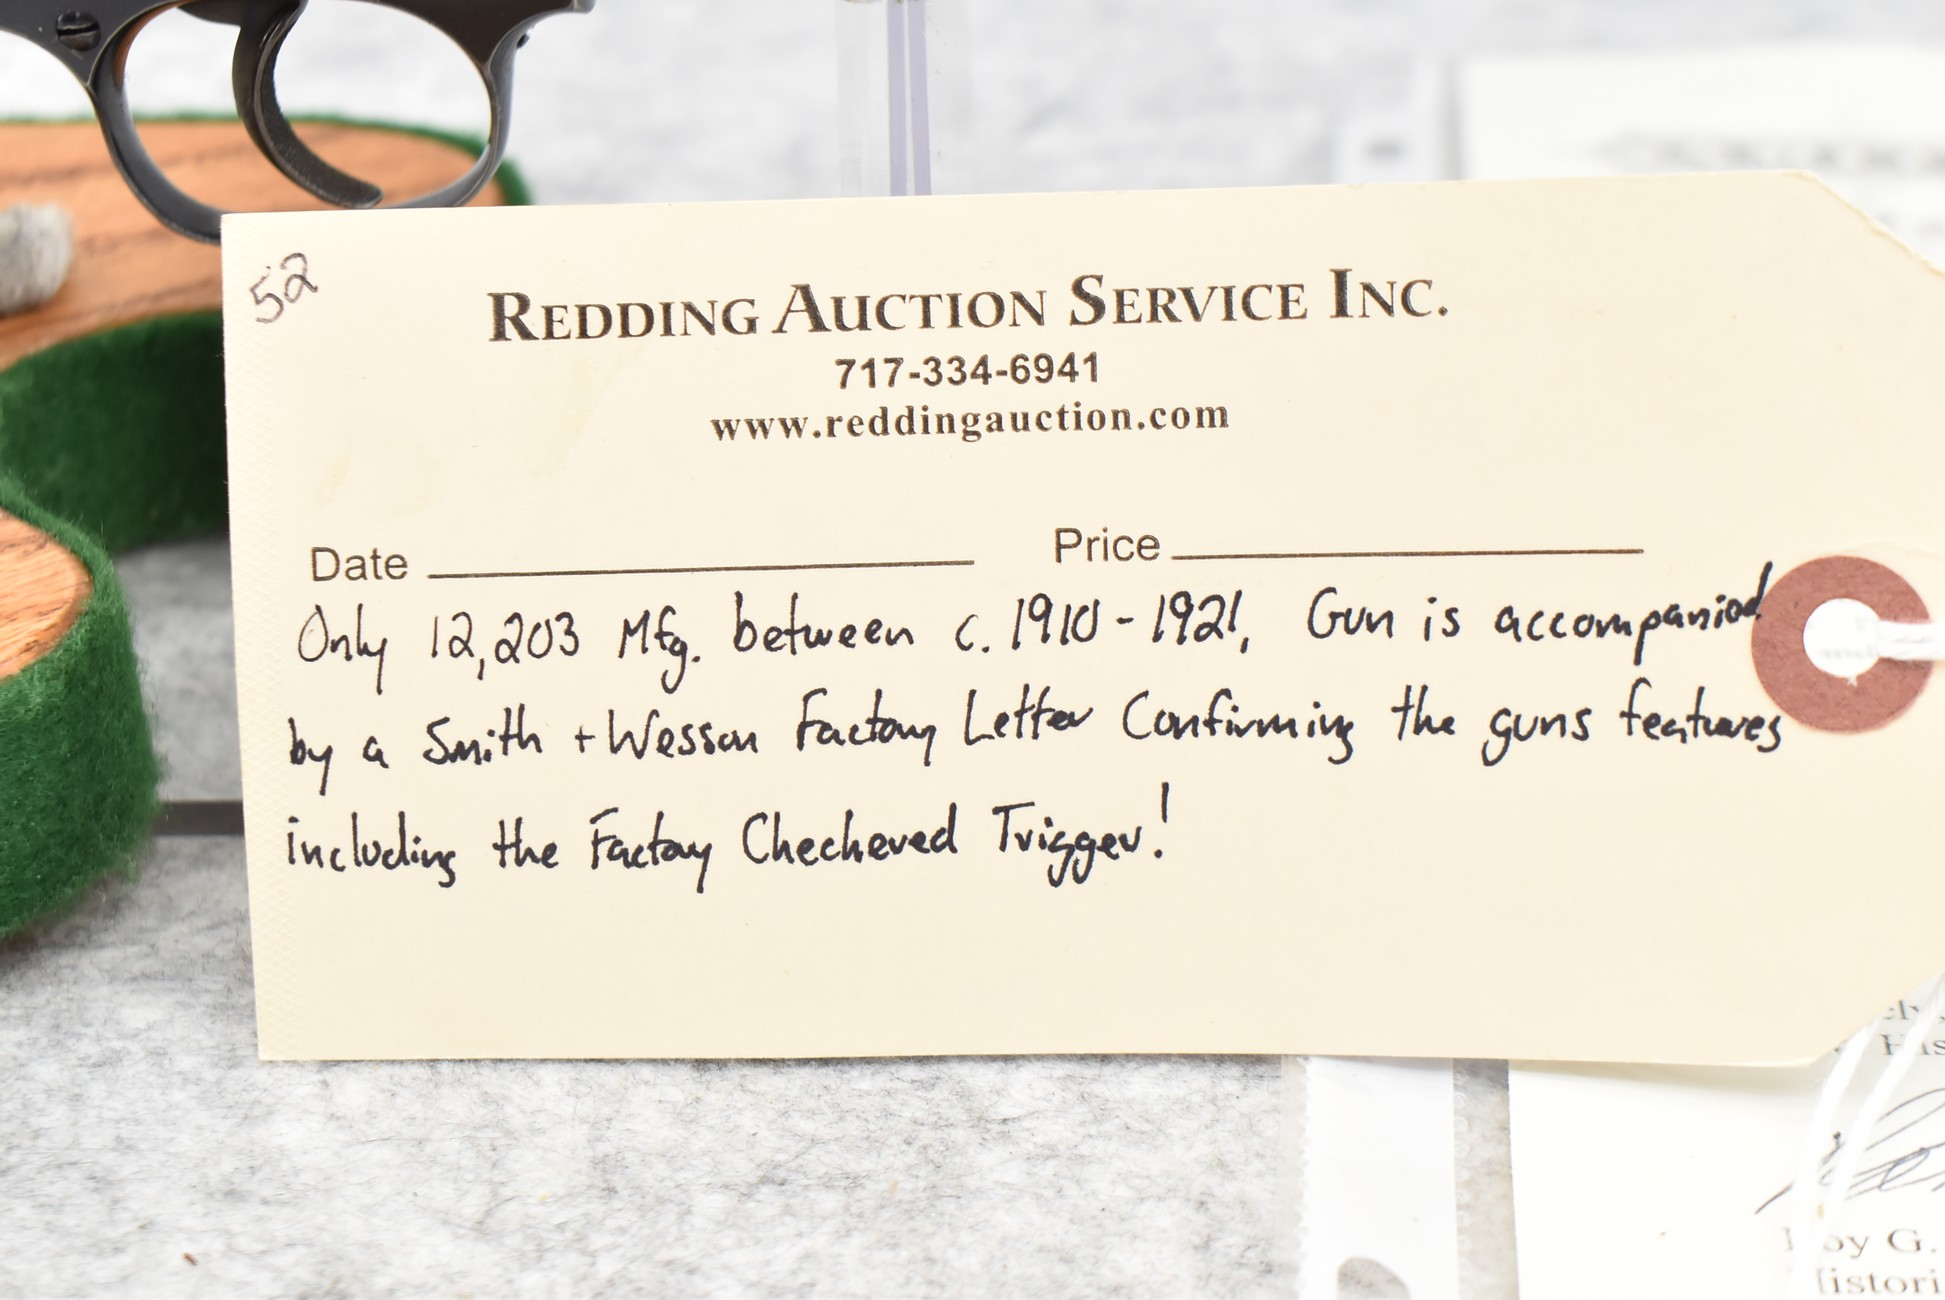 52
REDDING AUCTION SERVICE INC.
717-334-6941
www.reddingauction.com
Date Price
Only 12,203 Mfg. between c. 1910 - 1921, Gun is accompanied
by a Smith + Wesson Factory Letter Confirming the guns features
including the Factory Checkered Trigger!
ely,
His
oy G.
Histori